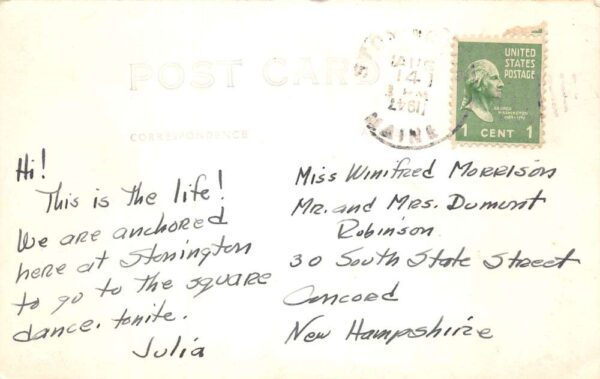 POST CARD
CORRESPONDENCE
UNITED
STATES
POSTAGE
GEORGE
WASHINGTON
1 CENT 1
MAINE
Hi!
This is the life!
We are anchored
here at Stonington
to go to the square
dance. tonite.
Julia
Miss Winifred Morrison
Mr. and Mrs. Dumont
Robinson
30 South State Street
Concord
New Hampshire